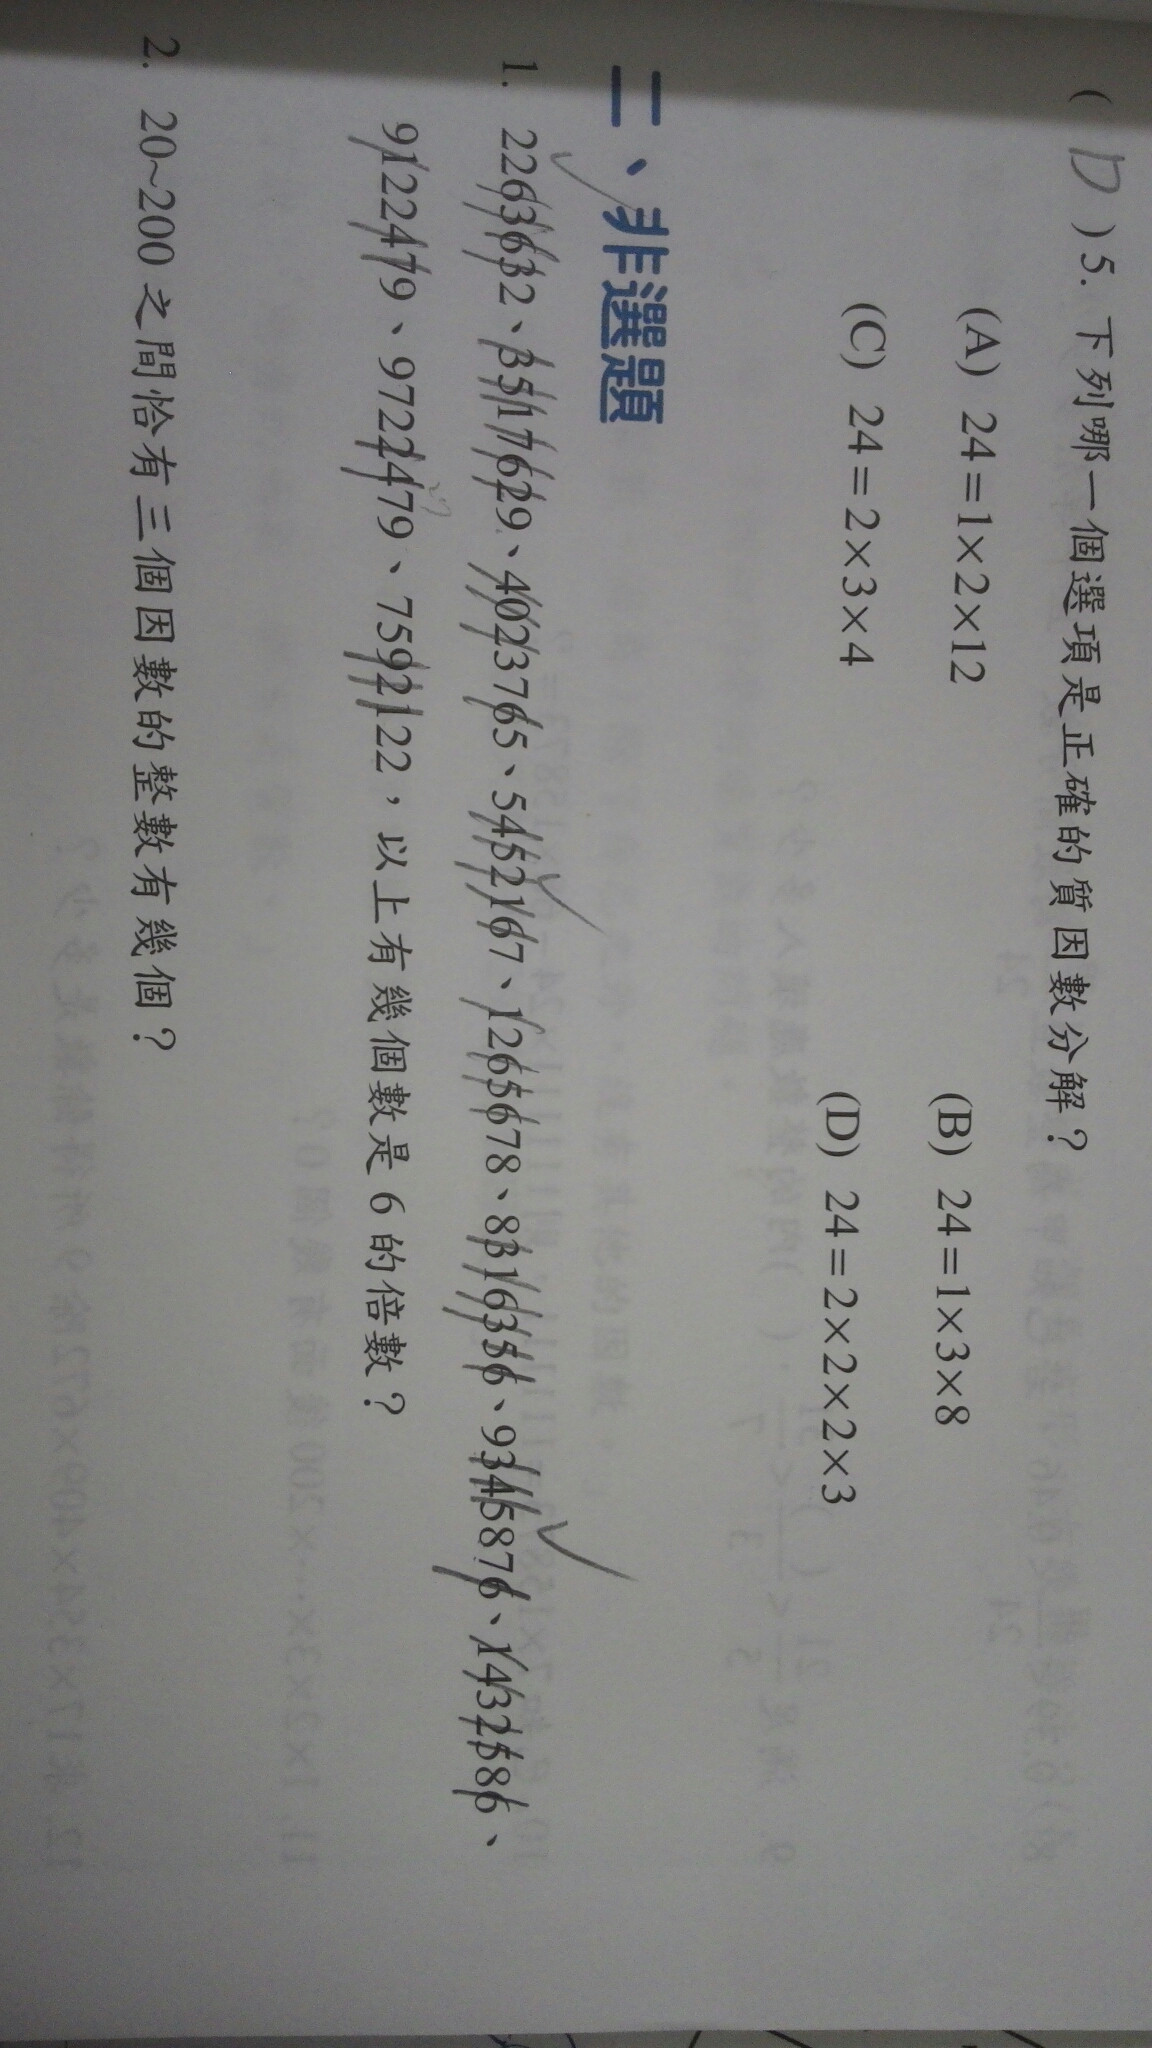 ( D ) 5. 下列哪一個選項是正確的質因數分解？
(A) 24=1×2×12 (B) 24=1×3×8
(C) 24=2×3×4 (D) 24=2×2×2×3
二、非選題
1. 2263632、3517629、4023765、5452167、1265678、8316356、9345876、1432586、
9122479、9722479、7592122，以上有幾個數是6的倍數？
2. 20~200之間恰有三個因數的整數有幾個？